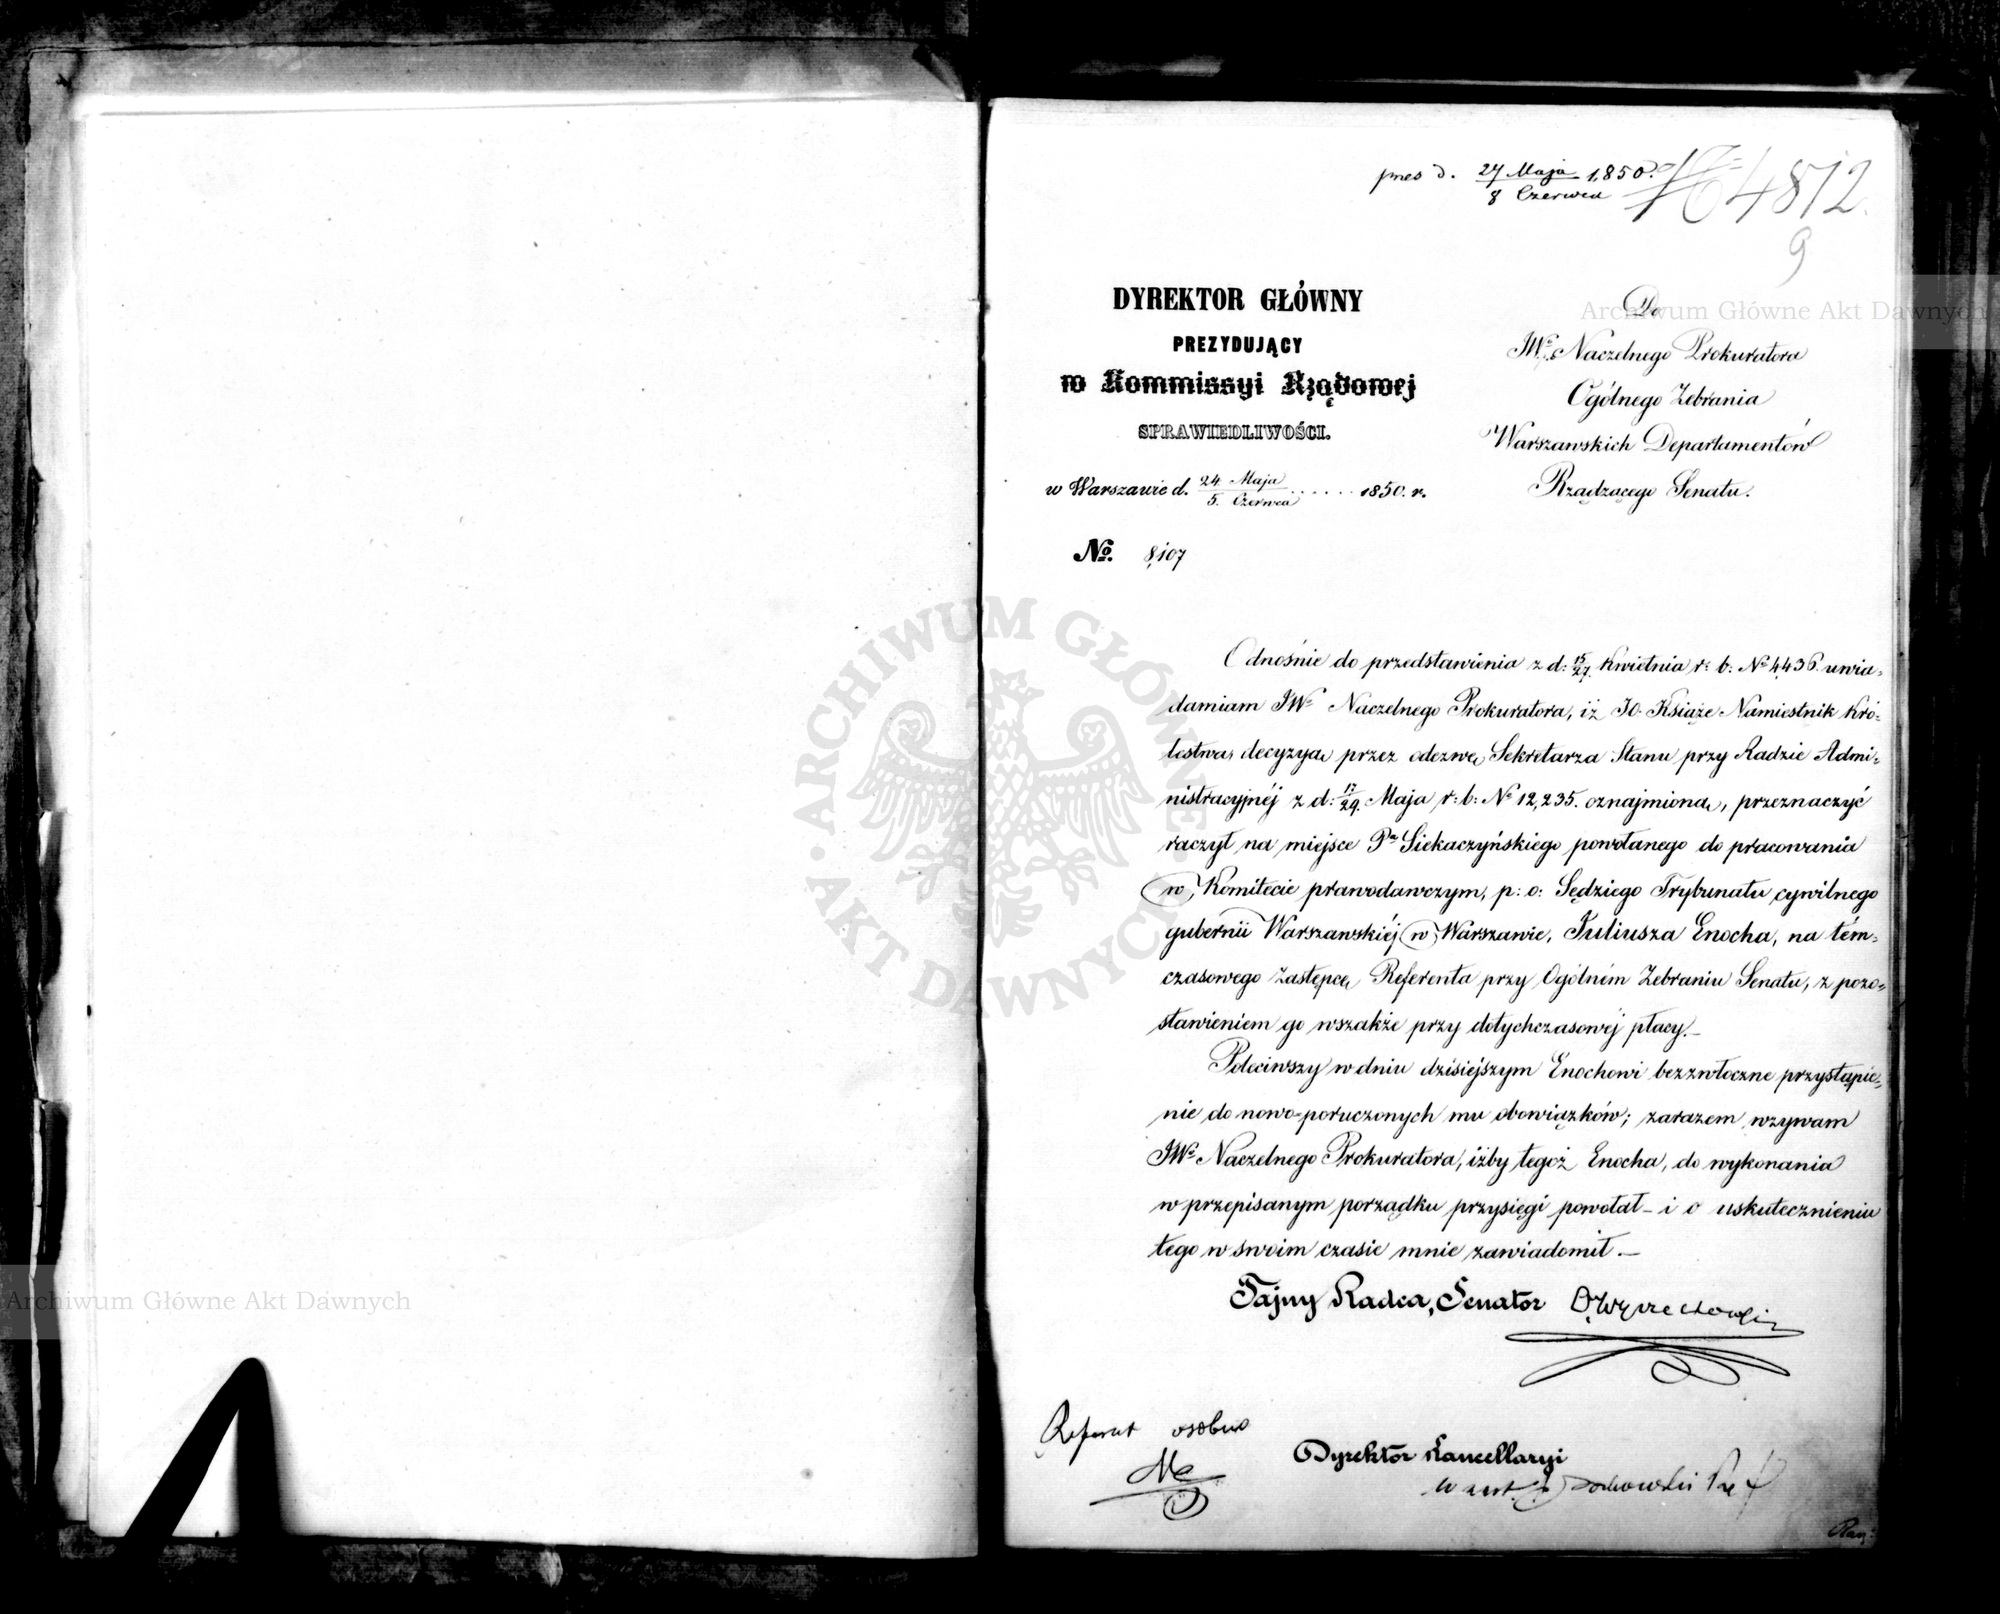 pres d. 27 Maja 1850.
8 Czerwca
4812.
9
DYREKTOR GŁÓWNY
PREZYDUJĄCY
w Kommissyi Rządowej
SPRAWIEDLIWOŚCI.
w Warszawie d. 24 Maja 1850. r.
5. Czerwca
No. 8,107
Do
JWo Naczelnego Prokuratora
Ogólnego Zebrania
Warszawskich Departamentów
Rządzącego Senatu.
Odnośnie do przedstawienia z d: 15/27. Kwietnia r: b: No 4,436. uwia-
damiam JWo Naczelnego Prokuratora, iż JO. Książe Namiestnik Kró-
lestwa, decyzyą przez odezwę Sekretarza Stanu przy Radzie Admi-
nistracyjnéj z d: 17/29. Maja r: b: No 12,235. oznajmioną, przeznaczyć
raczył na miejsce Pa Siekaczyńskiego powołanego do pracowania
w Komitecie prawodawczym, p: o: Sędziego Trybunału cywilnego
gubernii Warszawskiéj w Warszawie, Juliusza Enocha, na tém-
czasowego Zastępcę Referenta przy Ogólném Zebraniu Senatu, z pozo-
stawieniem go wszakże przy dotychczasowéj płacy.-
Poleciwszy w dniu dzisiejszym Enochowi bezzwłoczne przystąpie-
nie do nowo-poruczonych mu obowiązków; zarazem wzywam
JWo Naczelnego Prokuratora, iżby tegoż Enocha, do wykonania
w przepisanym porządku przysięgi powołał - i o uskutecznieniu
tego w swoim czasie mnie zawiadomił.-
Tajny Radca, Senator
Referat osobno
Dyrektor Kancellaryi
Archiwum Główne Akt Dawnych
Archiwum Główne Akt Dawnych
ARCHIWUM GŁÓWNE AKT DAWNYCH